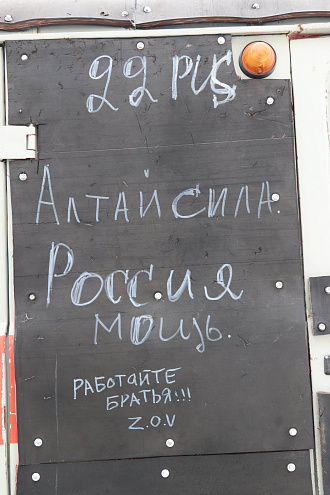 22 RUS
Алтай сила.
Россия
мощь.
РАБОТАЙТЕ
БРАТЬЯ!!!
Z.O.V